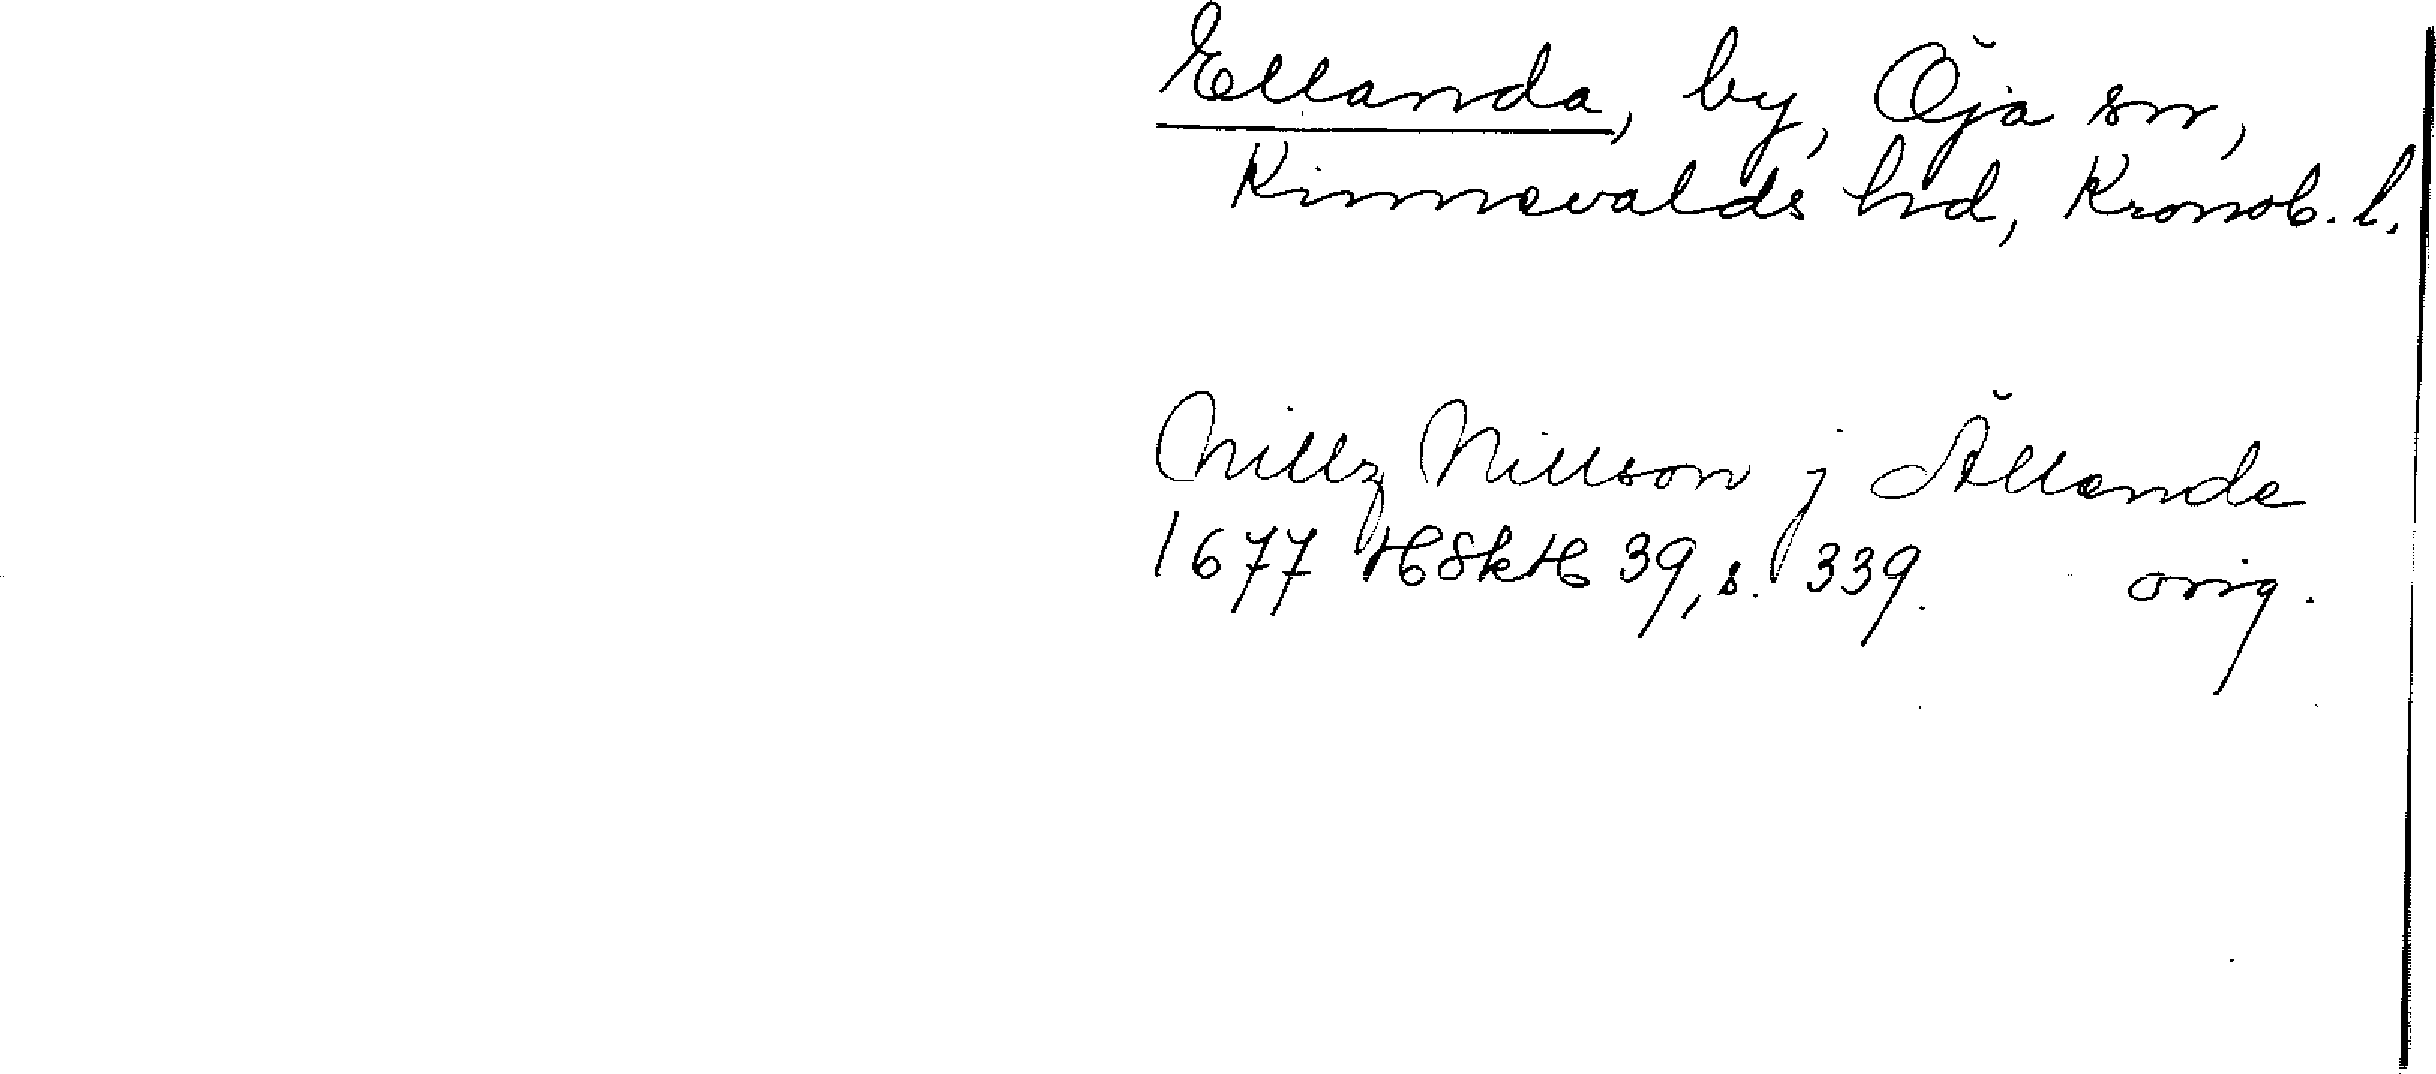 Ellanda, by, Öja sn,
Kinnevalds hd, Kronob. l.
Nillz Nillson j Ällande
1677 HSkH 39, s. 339. orig.